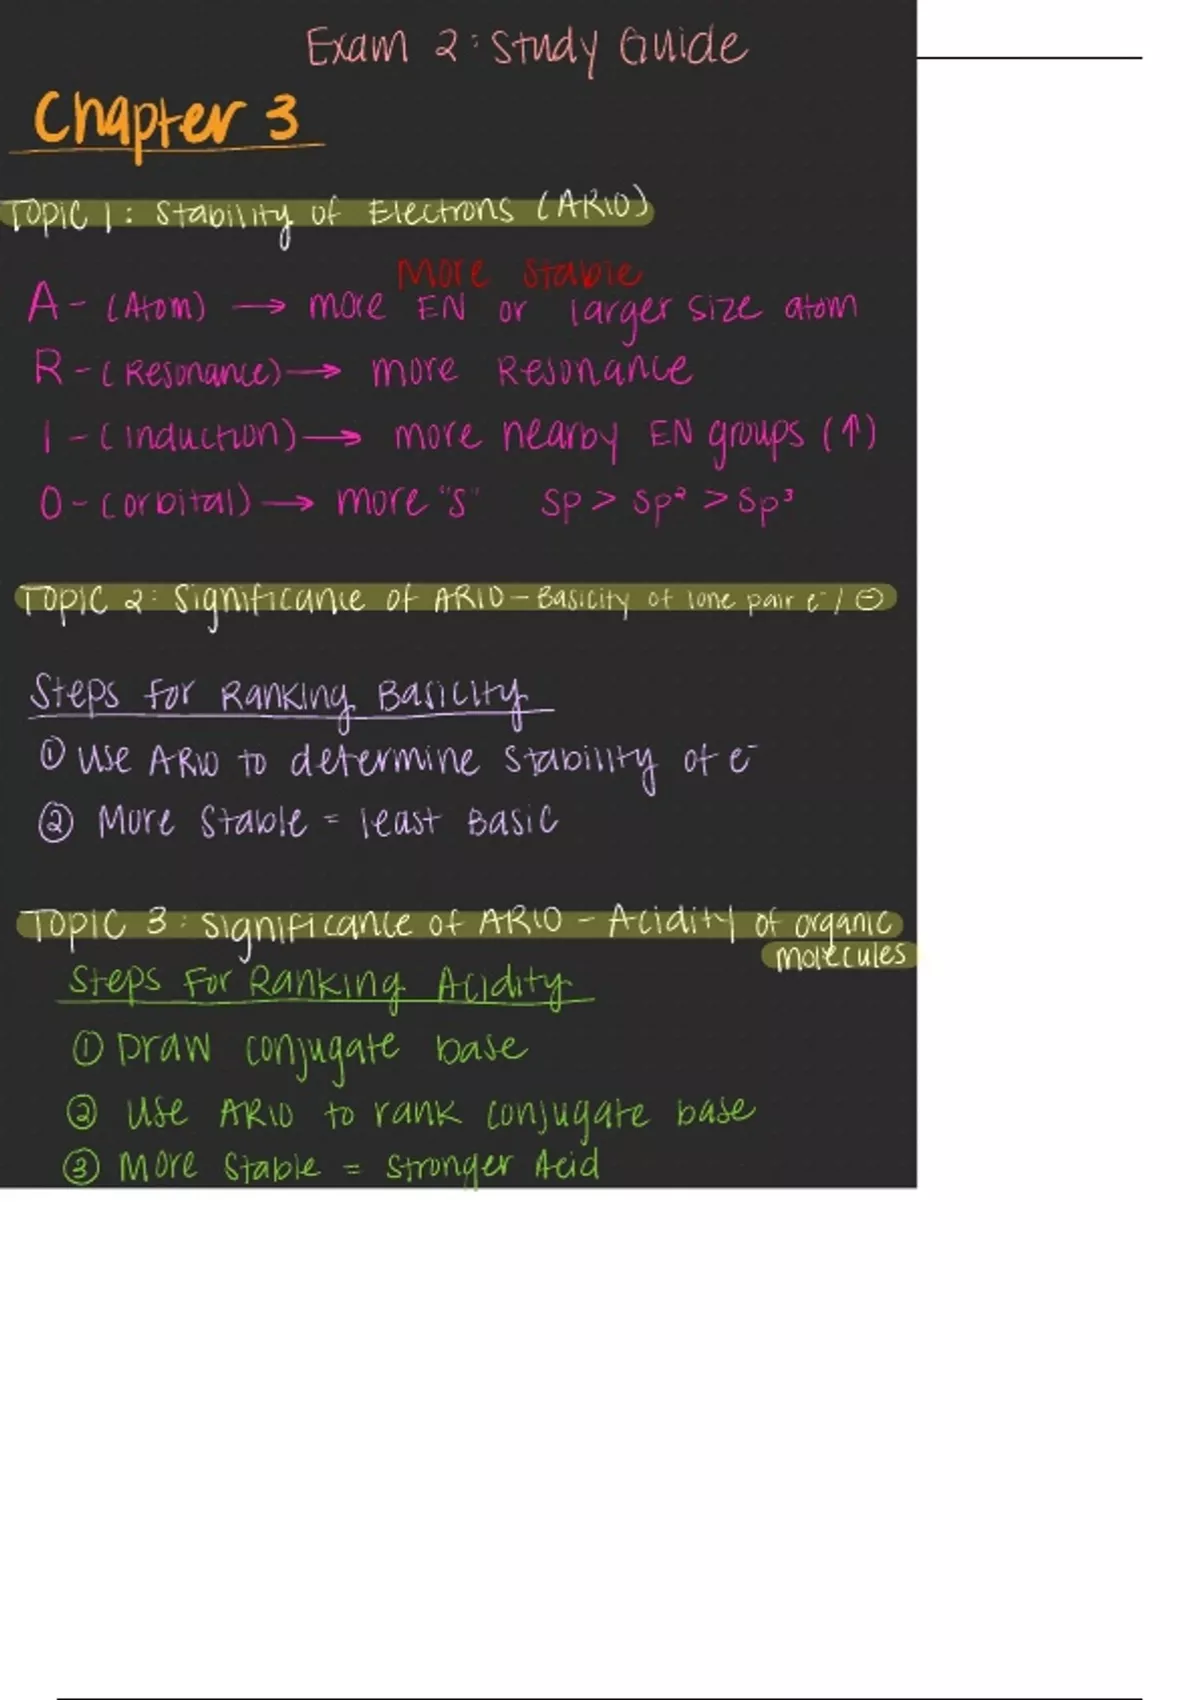 Exam 2: Study Guide
Chapter 3
TOPIC 1: Stability of Electrons (ARIO)
More Stable
A - (Atom) → more EN or larger size atom
R - (Resonance) → more Resonance
I - (induction) → more nearby EN groups (↑)
O - (orbital) → more "s" sp > sp² > sp³
TOPIC 2: Significance of ARIO - Basicity of lone pair e⁻/ ⊖
Steps for Ranking Basicity
① Use ARIO to determine stability of e⁻
② More Stable = least Basic
TOPIC 3: Significance of ARIO - Acidity of organic
molecules
Steps For Ranking Acidity
① Draw conjugate base
② Use ARIO to rank conjugate base
③ More Stable = Stronger Acid